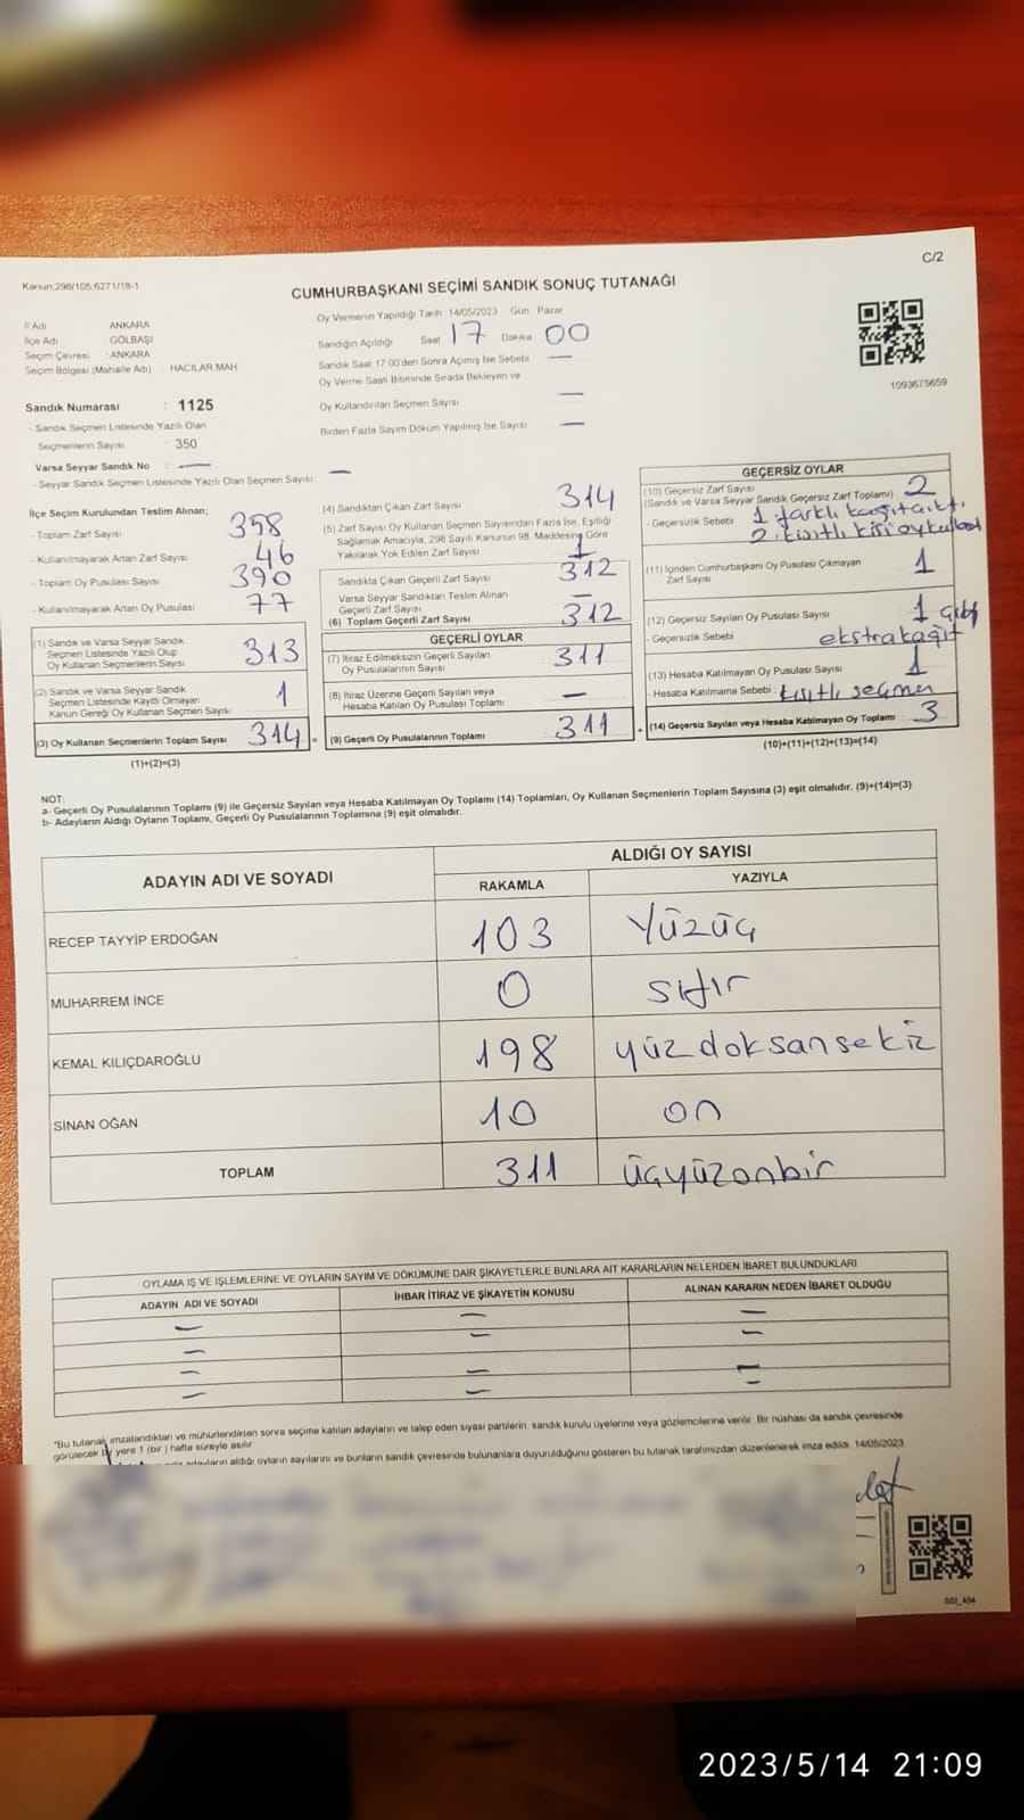 Kanun:298/105;6271/18-1
C/2
CUMHURBAŞKANI SEÇİMİ SANDIK SONUÇ TUTANAĞI
İl Adı ANKARA
İlçe Adı GÖLBAŞI
Seçim Çevresi ANKARA
Seçim Bölgesi (Mahalle Adı) HACILAR MAH
Sandık Numarası : 1125
- Sandık Seçmen Listesinde Yazılı Olan
Seçmenlerin Sayısı 350
Varsa Seyyar Sandık No : —
- Seyyar Sandık Seçmen Listesinde Yazılı Olan Seçmen Sayısı : —
Oy Vermenin Yapıldığı Tarih :14/05/2023 Gün: Pazar
Sandığın Açıldığı Saat 17 Dakika 00
Sandık Saat 17:00'den Sonra Açılmış İse Sebebi —
Oy Verme Saati Bitiminde Sırada Bekleyen ve
Oy Kullandırılan Seçmen Sayısı —
Birden Fazla Sayım Döküm Yapılmış İse Sayısı —
1093675659
İlçe Seçim Kurulundan Teslim Alınan;
- Toplam Zarf Sayısı 358
- Kullanılmayarak Artan Zarf Sayısı 46
- Toplam Oy Pusulası Sayısı 390
- Kullanılmayarak Artan Oy Pusulası 77
(1) Sandık ve Varsa Seyyar Sandık
Seçmen Listesinde Yazılı Olup
Oy Kullanan Seçmenlerin Sayısı 313
(2) Sandık ve Varsa Seyyar Sandık
Seçmen Listesinde Kayıtlı Olmayan
Kanun Gereği Oy Kullanan Seçmen Sayısı 1
(3) Oy Kullanan Seçmenlerin Toplam Sayısı 314 =
(1)+(2)=(3)
(4) Sandıktan Çıkan Zarf Sayısı 314
(5) Zarf Sayısı Oy Kullanan Seçmen Sayısından Fazla İse, Eşitliği
Sağlamak Amacıyla, 298 Sayılı Kanunun 98. Maddesine Göre
Yakılarak Yok Edilen Zarf Sayısı 1
Sandıkta Çıkan Geçerli Zarf Sayısı 312
Varsa Seyyar Sandıktan Teslim Alınan
Geçerli Zarf Sayısı —
(6) Toplam Geçerli Zarf Sayısı 312
GEÇERLİ OYLAR
(7) İtiraz Edilmeksizin Geçerli Sayılan
Oy Pusulalarının Sayısı 311
(8) İtiraz Üzerine Geçerli Sayılan veya
Hesaba Katılan Oy Pusulası Toplamı —
(9) Geçerli Oy Pusulalarının Toplamı 311
GEÇERSİZ OYLAR
(10) Geçersiz Zarf Sayısı
(Sandık ve Varsa Seyyar Sandık Geçersiz Zarf Toplamı) 2
- Geçersizlik Sebebi 1 farklı kağıt çıktı.
2. kısıtlı kişi oy kullandı
(11) İçinden Cumhurbaşkanı Oy Pusulası Çıkmayan
Zarf Sayısı 1
(12) Geçersiz Sayılan Oy Pusulası Sayısı 1
- Geçersizlik Sebebi ekstra kağıt
(13) Hesaba Katılmayan Oy Pusulası Sayısı 1
- Hesaba Katılmama Sebebi : kısıtlı seçmen
(14) Geçersiz Sayılan veya Hesaba Katılmayan Oy Toplamı 3
(10)+(11)+(12)+(13)=(14)
NOT:
a- Geçerli Oy Pusulalarının Toplamı (9) ile Geçersiz Sayılan veya Hesaba Katılmayan Oy Toplamı (14) Toplamları, Oy Kullanan Seçmenlerin Toplam Sayısına (3) eşit olmalıdır. (9)+(14)=(3)
b- Adayların Aldığı Oyların Toplamı, Geçerli Oy Pusulalarının Toplamına (9) eşit olmalıdır.
ADAYIN ADI VE SOYADI
ALDIĞI OY SAYISI
RAKAMLA YAZIYLA
RECEP TAYYİP ERDOĞAN 103 Yüzüç
MUHARREM İNCE 0 sıfır
KEMAL KILIÇDAROĞLU 198 yüzdoksansekiz
SİNAN OĞAN 10 on
TOPLAM 311 üçyüzonbir
OYLAMA İŞ VE İŞLEMLERİNE VE OYLARIN SAYIM VE DÖKÜMÜNE DAİR ŞİKAYETLERLE BUNLARA AİT KARARLARIN NELERDEN İBARET BULUNDUKLARI
ADAYIN ADI VE SOYADI İHBAR İTİRAZ VE ŞİKAYETİN KONUSU ALINAN KARARIN NEDEN İBARET OLDUĞU
— — —
— — —
— — —
— — —
"Bu tutanak imzalandıktan ve mühürlendikten sonra seçime katılan adayların ve talep eden siyasi partilerin, sandık kurulu üyelerine veya gözlemcilerine verilir. Bir nüshası da sandık çevresinde
görülecek bir yere 1 (bir) hafta süreyle asılır
adayların aldığı oyların sayılarını ve bunların sandık çevresinde bulunanlara duyurulduğunu gösteren bu tutanak tarafımızdan düzenlenerek imza edildi. 14/05/2023
2023/5/14 21:09